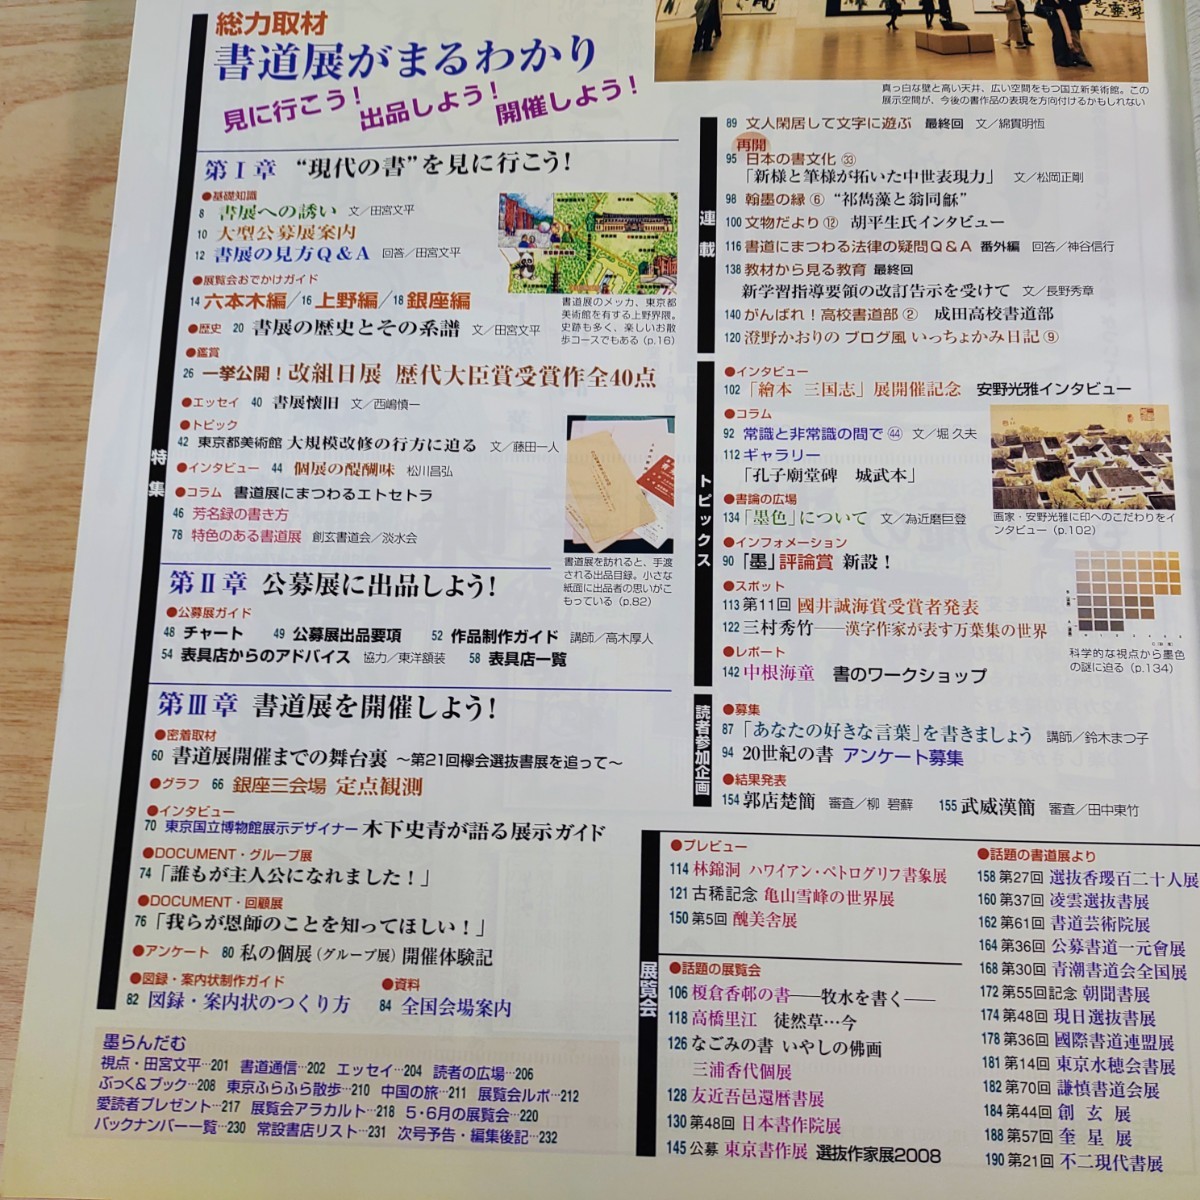 総力取材
書道展がまるわかり
見に行こう！ 出品しよう！ 開催しよう！
第Ⅰ章 “現代の書”を見に行こう！
●基礎知識
8 書展への誘い 文／田宮文平
10 大型公募展案内
12 書展の見方Q＆A 回答／田宮文平
●展覧会おでかけガイド
14 六本木編／16 上野編／18 銀座編
●歴史 20 書展の歴史とその系譜 文／田宮文平
●鑑賞
26 一挙公開！改組日展 歴代大臣賞受賞作全40点
●エッセイ 40 書展懐旧 文／西嶋慎一
●トピック
42 東京都美術館 大規模改修の行方に迫る 文／藤田一人
●インタビュー 44 個展の醍醐味 松川昌弘
●コラム 書道展にまつわるエトセトラ
46 芳名録の書き方
78 特色のある書道展 創玄書道会／淡水会
書道展のメッカ、東京都
美術館を有する上野界隈。
史跡も多く、楽しいお散
歩コースでもある（p.16）
書道展を訪れると、手渡
される出品目録。小さな
紙面に出品者の思いがこ
もっている（p.82）
第Ⅱ章 公募展に出品しよう！
●公募展ガイド
48 チャート 49 公募展出品要項 52 作品制作ガイド 講師／高木厚人
54 表具店からのアドバイス 協力／東洋額装 58 表具店一覧
第Ⅲ章 書道展を開催しよう！
●密着取材
60 書道展開催までの舞台裏 〜第21回欅会選抜書展を追って〜
●グラフ 66 銀座三会場 定点観測
●インタビュー
70 東京国立博物館展示デザイナー 木下史青が語る展示ガイド
●DOCUMENT・グループ展
74「誰もが主人公になれました！」
●DOCUMENT・回顧展
76「我らが恩師のことを知ってほしい！」
●アンケート 80 私の個展（グループ展）開催体験記
●図録・案内状制作ガイド
82 図録・案内状のつくり方
●資料
84 全国会場案内
特集
墨らんだむ
視点・田宮文平…201 書道通信…202 エッセイ…204 読者の広場…206
ぶっく＆ブック…208 東京ふらふら散歩…210 中国の旅…211 展覧会ルポ…212
愛読者プレゼント…217 展覧会アラカルト…218 5・6月の展覧会…220
バックナンバー一覧…230 常設書店リスト…231 次号予告・編集後記…232
真っ白な壁と高い天井、広い空間をもつ国立新美術館。この
展示空間が、今後の書作品の表現を方向付けるかもしれない
連載
89 文人閑居して文字に遊ぶ 最終回 文／綿貫明恆
再開
95 日本の書文化㉝
「新様と筆様が拓いた中世表現力」 文／松岡正剛
98 翰墨の縁⑥ “祁寯藻と翁同龢”
100 文物だより⑫ 胡平生氏インタビュー
116 書道にまつわる法律の疑問Q＆A 番外編 回答／神谷信行
138 教材から見る教育 最終回
新学習指導要領の改訂告示を受けて 文／長野秀章
140 がんばれ！高校書道部② 成田高校書道部
120 澄野かおりの ブログ風 いっちょかみ日記⑨
トピックス
●インタビュー
102「繪本 三国志」展開催記念 安野光雅インタビュー
●コラム
92 常識と非常識の間で㊹ 文／堀 久夫
112 ギャラリー
「孔子廟堂碑 城武本」
●書論の広場
134「墨色」について 文／為近磨巨登
●インフォメーション
90「墨」評論賞 新設！
●スポット
113 第11回 國井誠海賞受賞者発表
122 三村秀竹――漢字作家が表す万葉集の世界
●レポート
142 中根海童 書のワークショップ
画家・安野光雅に印へのこだわりをイ
ンタビュー（p.102）
科学的な視点から墨色
の謎に迫る（p.134）
読者参加企画
●募集
87「あなたの好きな言葉」を書きましょう 講師／鈴木まつ子
94 20世紀の書 アンケート募集
●結果発表
154 郭店楚簡 審査／柳 碧蘚 155 武威漢簡 審査／田中東竹
展覧会
●プレビュー
114 林錦洞 ハワイアン・ペトログリフ書象展
121 古稀記念 亀山雪峰の世界展
150 第5回 醜美舎展
●話題の展覧会
106 榎倉香邨の書――牧水を書く――
118 高橋里江 徒然草…今
126 なごみの書 いやしの佛画
三浦香代個展
128 友近吾邑還暦書展
130 第48回 日本書作院展
145 公募 東京書作展 選抜作家展2008
●話題の書道展より
158 第27回 選抜香瓔百二十人展
160 第37回 凌雲選抜書展
162 第61回 書道芸術院展
164 第36回 公募書道一元會展
168 第30回 青潮書道会全国展
172 第55回記念 朝聞書展
174 第48回 現日選抜書展
178 第36回 國際書道連盟展
181 第14回 東京水穂会書展
182 第70回 謙慎書道会展
184 第44回 創玄展
188 第57回 奎星展
190 第21回 不二現代書展